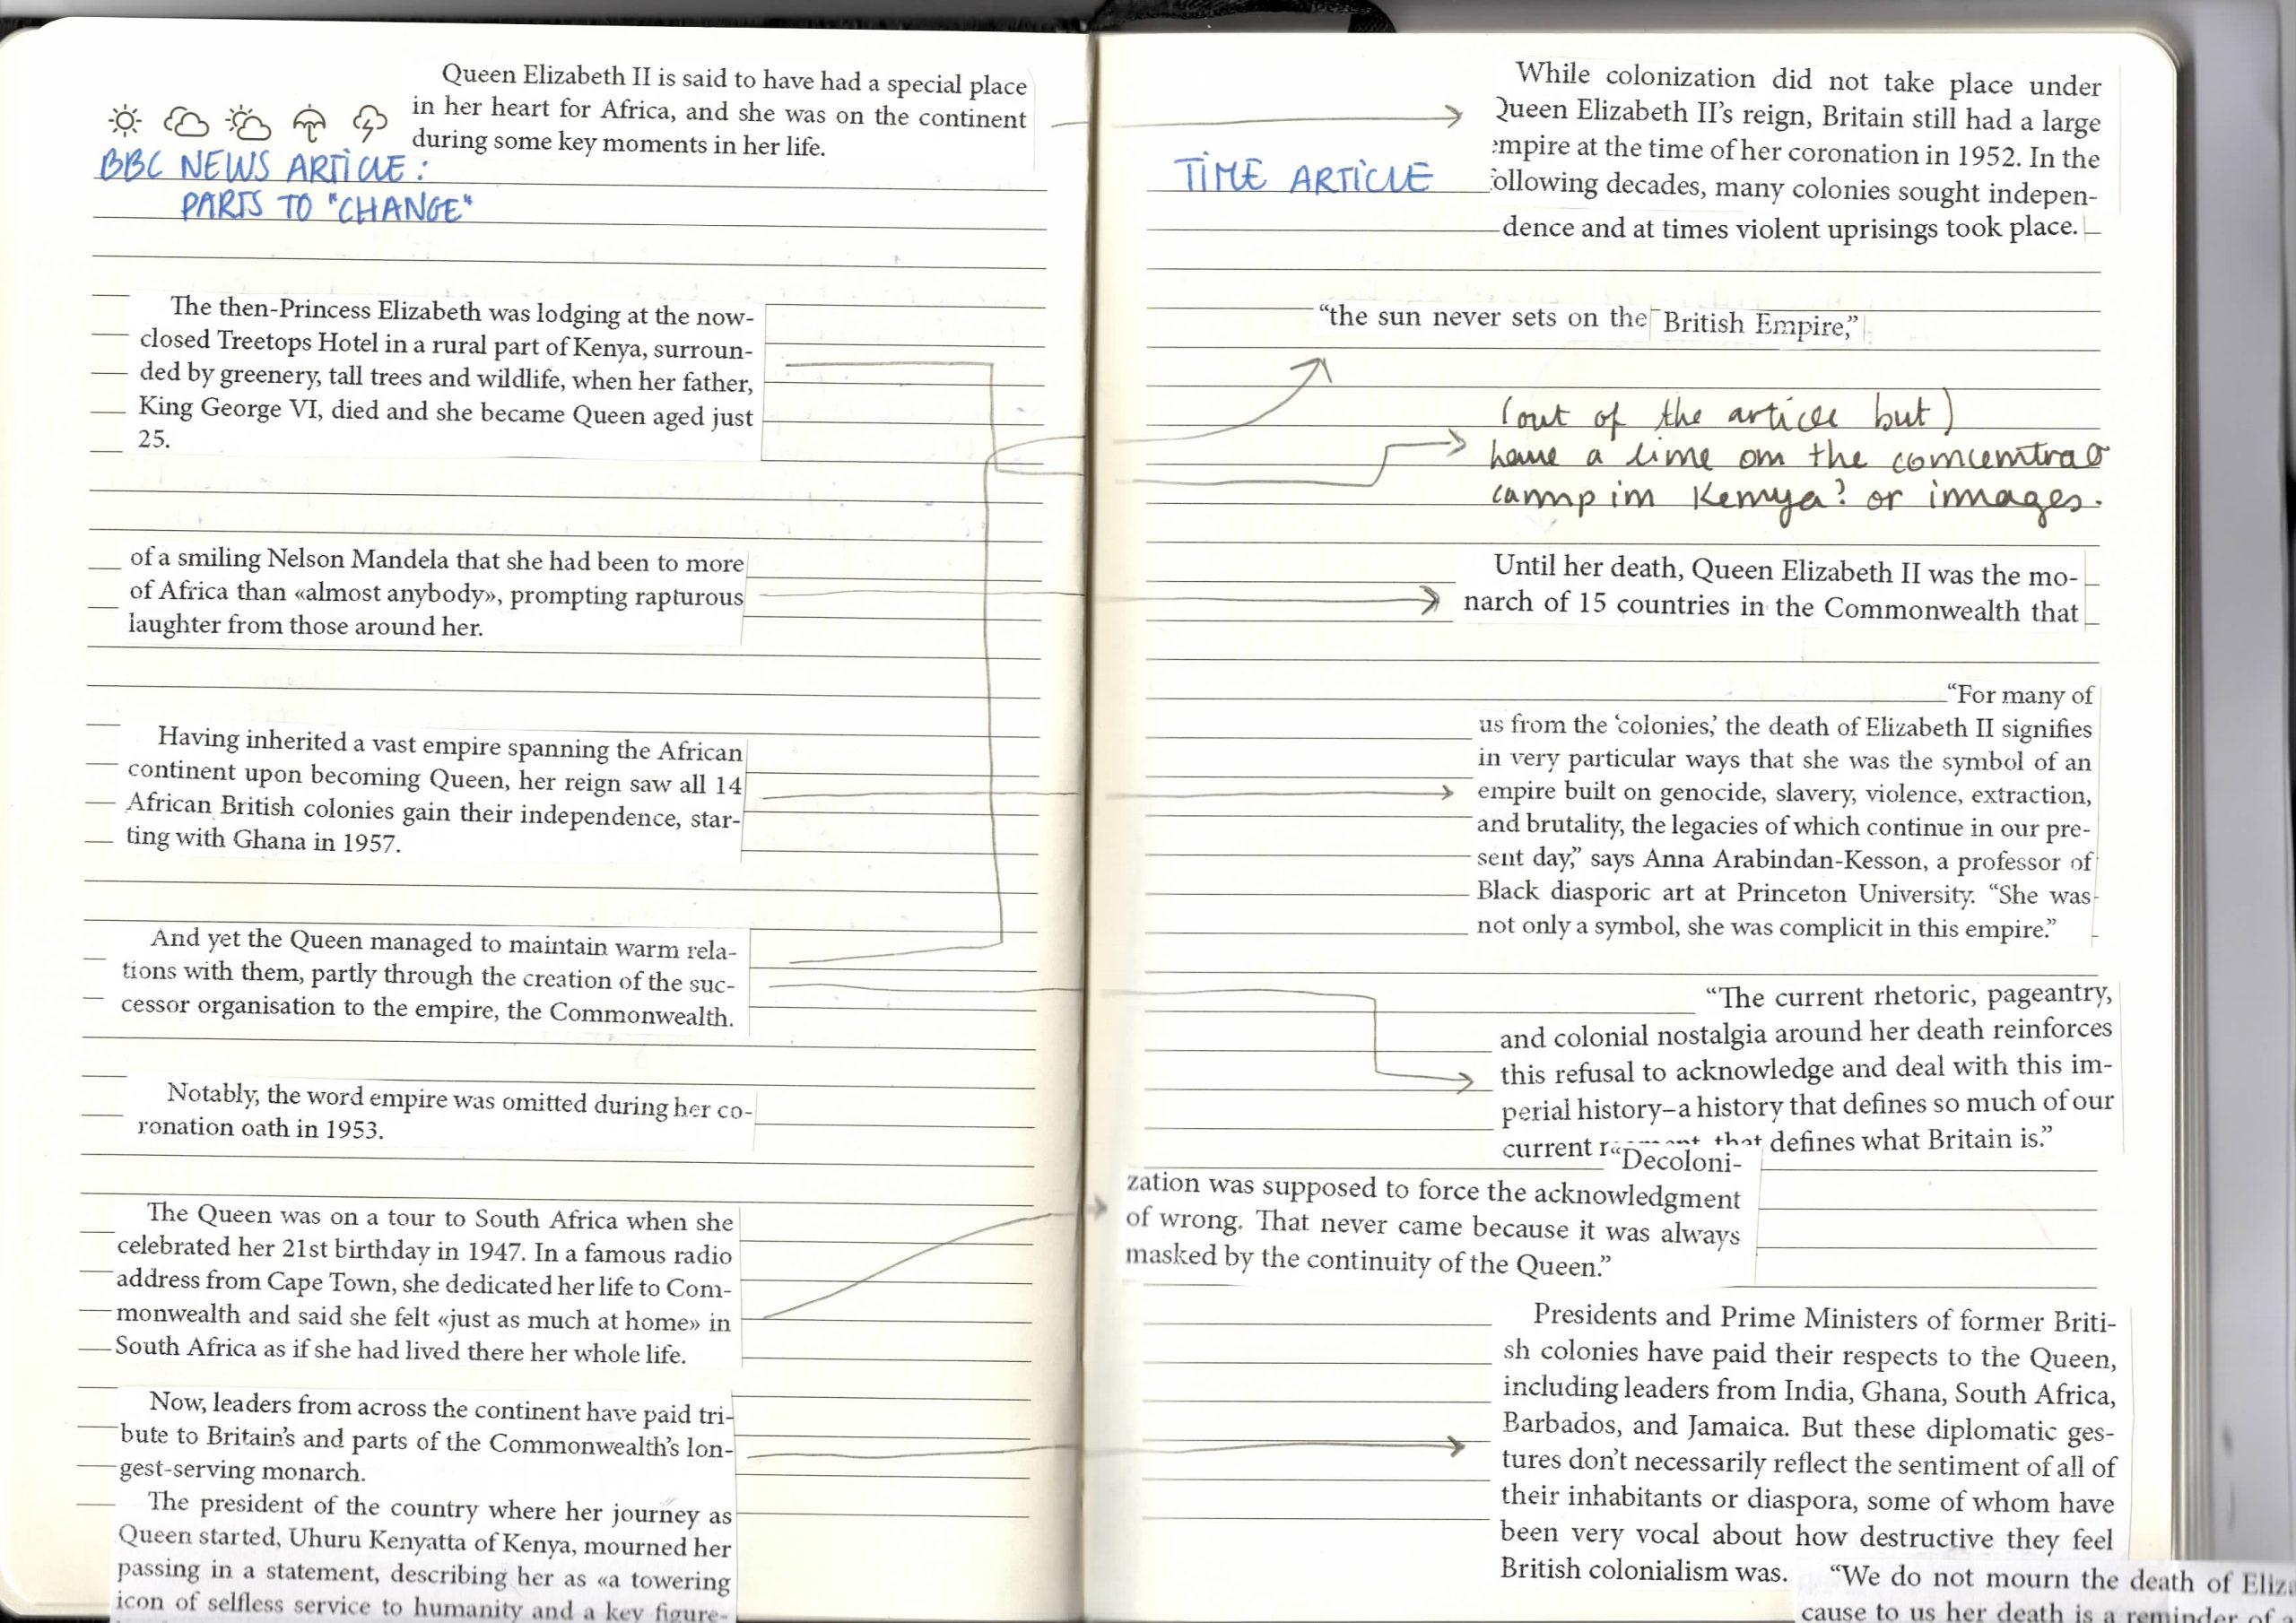 Queen Elizabeth II is said to have had a special place
in her heart for Africa, and she was on the continent
during some key moments in her life.
BBC NEWS ARTICLE :
PARTS TO "CHANGE"
The then-Princess Elizabeth was lodging at the now-
closed Treetops Hotel in a rural part of Kenya, surroun-
ded by greenery, tall trees and wildlife, when her father,
King George VI, died and she became Queen aged just
25.
of a smiling Nelson Mandela that she had been to more
of Africa than «almost anybody», prompting rapturous
laughter from those around her.
Having inherited a vast empire spanning the African
continent upon becoming Queen, her reign saw all 14
African British colonies gain their independence, star-
ting with Ghana in 1957.
And yet the Queen managed to maintain warm rela-
tions with them, partly through the creation of the suc-
cessor organisation to the empire, the Commonwealth.
Notably, the word empire was omitted during her co-
ronation oath in 1953.
The Queen was on a tour to South Africa when she
celebrated her 21st birthday in 1947. In a famous radio
address from Cape Town, she dedicated her life to Com-
monwealth and said she felt «just as much at home» in
South Africa as if she had lived there her whole life.
Now, leaders from across the continent have paid tri-
bute to Britain's and parts of the Commonwealth's lon-
gest-serving monarch.
The president of the country where her journey as
Queen started, Uhuru Kenyatta of Kenya, mourned her
passing in a statement, describing her as «a towering
icon of selfless service to humanity and a key figure-
While colonization did not take place under
Queen Elizabeth II's reign, Britain still had a large
empire at the time of her coronation in 1952. In the
following decades, many colonies sought indepen-
dence and at times violent uprisings took place.
TIME ARTICLE
“the sun never sets on the British Empire,”
(out of the article but)
have a line on the concentrao
camp in Kenya? or images.
Until her death, Queen Elizabeth II was the mo-
narch of 15 countries in the Commonwealth that
“For many of
us from the ‘colonies,’ the death of Elizabeth II signifies
in very particular ways that she was the symbol of an
empire built on genocide, slavery, violence, extraction,
and brutality, the legacies of which continue in our pre-
sent day,” says Anna Arabindan-Kesson, a professor of
Black diasporic art at Princeton University. “She was
not only a symbol, she was complicit in this empire.”
“The current rhetoric, pageantry,
and colonial nostalgia around her death reinforces
this refusal to acknowledge and deal with this im-
perial history–a history that defines so much of our
current that defines what Britain is.”
“Decoloni-
zation was supposed to force the acknowledgment
of wrong. That never came because it was always
masked by the continuity of the Queen.”
Presidents and Prime Ministers of former Briti-
sh colonies have paid their respects to the Queen,
including leaders from India, Ghana, South Africa,
Barbados, and Jamaica. But these diplomatic ges-
tures don't necessarily reflect the sentiment of all of
their inhabitants or diaspora, some of whom have
been very vocal about how destructive they feel
British colonialism was.
“We do not mourn the death of Eliza
cause to us her death is a reminder of a